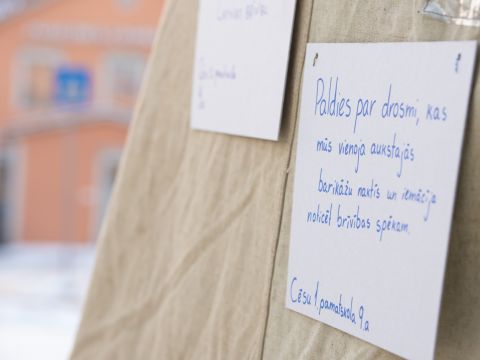 Latvijas Brīvība
Cēsu 1. pamatskola
Paldies par drosmi, kas
mūs vienoja aukstajās
barikāžu naktīs un iemācīja
noticēt brīvības spēkam.
Cēsu 1. pamatskola 9.a